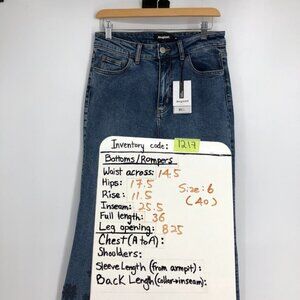 Inventory code: 1217
Bottoms/Rompers
Waist across: 14.5
Hips: 17.5
Size: 6
Rise: 11.5
(40)
Inseam: 25.5
Full length: 36
Leg opening: 8.25
Chest (A to A):
Shoulders:
Sleeve Length (from armpit):
Back Length (collar→inseam):